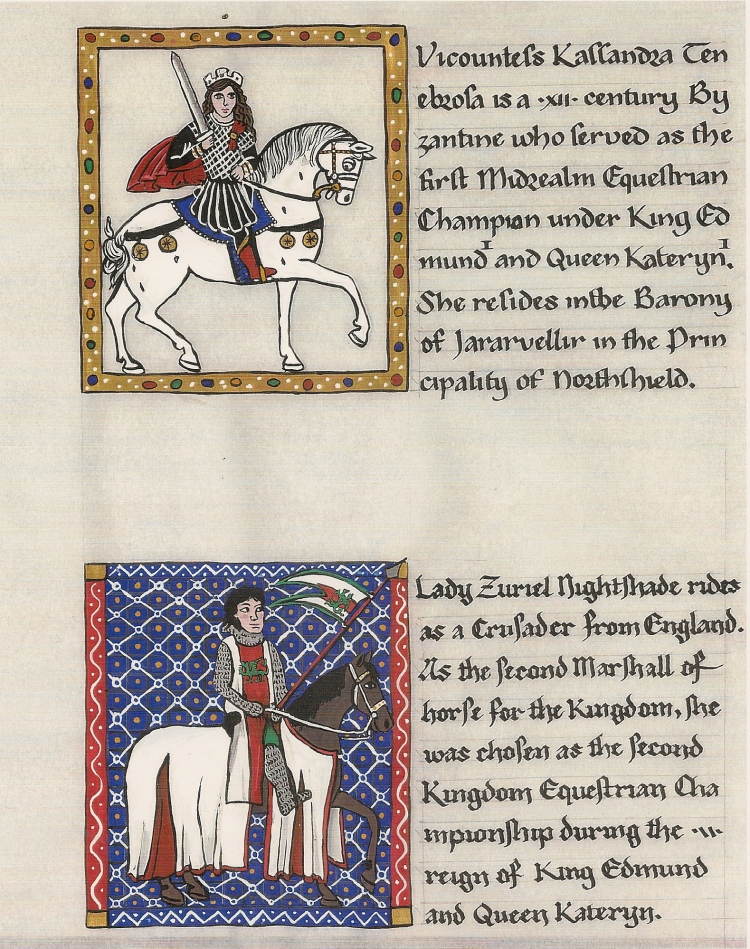 Vicounteſs Kaſſandra Ten
ebroſa is a ·xii· century By
zantine who ſerved as the
firſt Midrealm Equeſtrian
Champion under King Ed
mund I and Queen Kateryn I.
She reſides in the Barony
of Jararvellir in the Prin
cipality of Northſhield.
Lady Zuriel Nightſhade rides
as a Cruſader from England.
As the ſecond Marſhall of
horſe for the Kingdom, ſhe
was choſen as the ſecond
Kingdom Equeſtrian Cha
mpionſhip during the
reign of King Edmund
and Queen Kateryn.